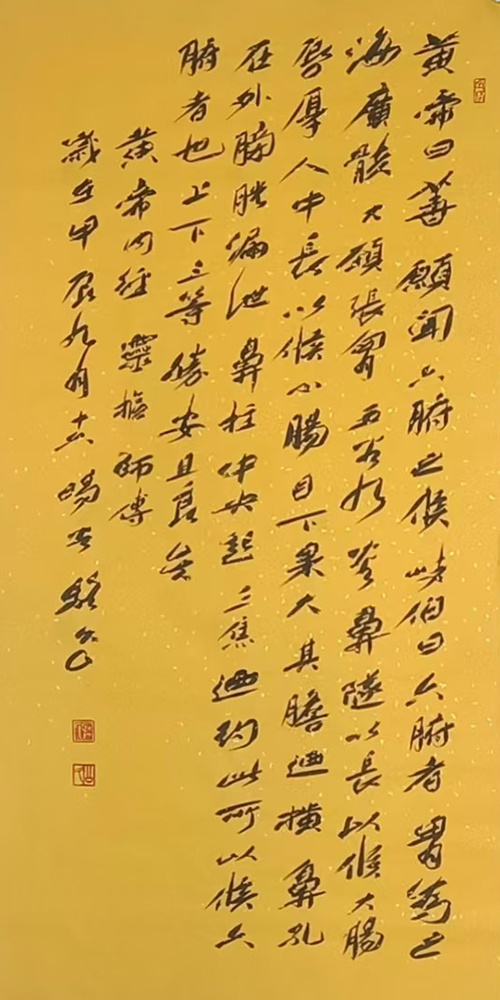 黄帝曰善願聞六腑之候岐伯曰六腑者胃為之
海廣骸大頸張胸五谷乃容鼻隧以長以候大腸
唇厚人中長以候小腸目下果大其膽迺横鼻孔
在外膀胱漏泄鼻柱仲央起三焦迺約此所以候六
腑者也上下三等安且良矣
黄帝内经靈樞師傳
歲在甲辰九月十六